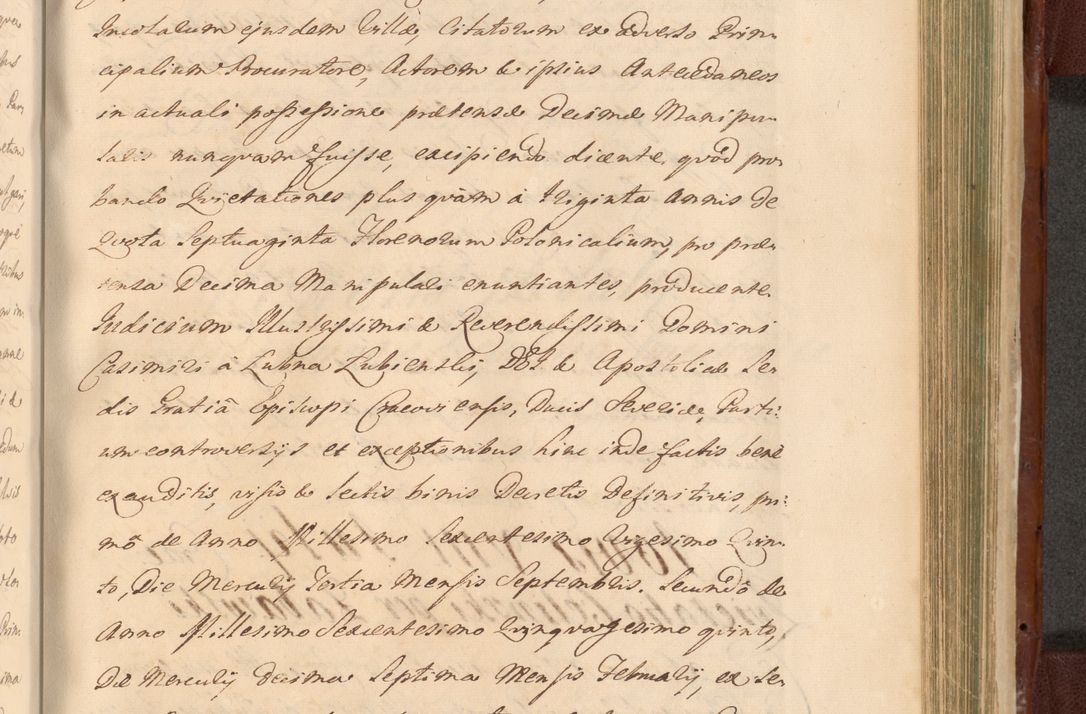 Incolarum ejusdem Villæ, Citatorum ex adverso Prin
cipalium Procuratore, Actorem & ipsius Antecedaneos
in actuali possessione prætensæ Decimæ Manipu
laris nunquam fuisse, excipiendo dicente, quòd pro
bando Quietationes plus quàm à triginta annis de
Quota Septuaginta Florenorum Polonicalium, pro præ
tensa Decima Manipulari enuntiantes, producente.
Iudicium Illustrissimi & Reverendissimi Domini
Casimiri à Lubna Lubienski, DEI & Apostolicæ Se
dis Gratiâ Episcopi Cracoviensis, Ducis Severiæ, Parti
um controversijs et exceptionibus hinc inde factis bene
exauditis, visis & lectis binis Decretis Definitivis, pri
mô de Anno Millesimo Sexcentesimo Vigesimo Quin
to, Die Mercurij Tertia Mensis Septembris. Secundò de
Anno Millesimo Sexcentesimo Quinquagesimo quinto,
Die Mercurij decima Septima Mensis Februarij, ex Se